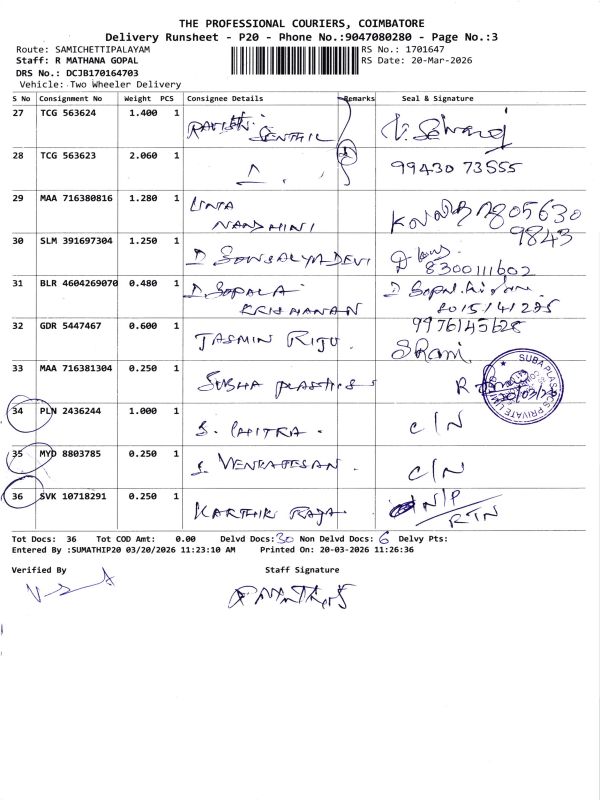 THE PROFESSIONAL COURIERS, COIMBATORE
Delivery Runsheet - P20 - Phone No.:9047080280 - Page No.:3
Route: SAMICHETTIPALAYAM
RS No.: 1701647
Staff: R MATHANA GOPAL
RS Date: 20-Mar-2026
DRS No.: DCJB170164703
Vehicle: Two Wheeler Delivery
S No Consignment No Weight PCS Consignee Details Remarks Seal & Signature
27 TCG 563624 1.400 1 SENTHIL
28 TCG 563623 2.060 1 99430 73555
29 MAA 716380816 1.280 1 NANDHINI
9843
30 SLM 391697304 1.250 1 D
8300111602
31 BLR 4604269070 0.480 1 D. GOPALA
KRISHANAN
32 GDR 5447467 0.600 1 JASMIN RIJU. 9976145628
S Rani
33 MAA 716381304 0.250 1 SUBHA plastics
SUBA PLASTICS PRIVATE LIMITED
34 PLN 2436244 1.000 1 S. CHITRA. C/N
35 MYD 8803785 0.250 1 S VENKATESAN. C/N
36 SVK 10718291 0.250 1 KARTHIK RAJA. N/P
RTN
Tot Docs: 36 Tot COD Amt: 0.00 Delvd Docs: 30 Non Delvd Docs: 6 Delvy Pts:
Entered By :SUMATHIP20 03/20/2026 11:23:10 AM Printed On: 20-03-2026 11:26:36
Verified By Staff Signature